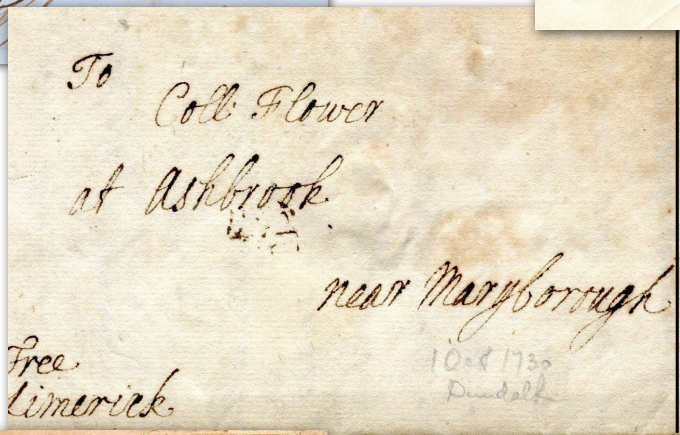 To
Coll: Flower
at Ashbrook
near Maryborough
Free
Limerick
1 Oct 1730
Dundalk